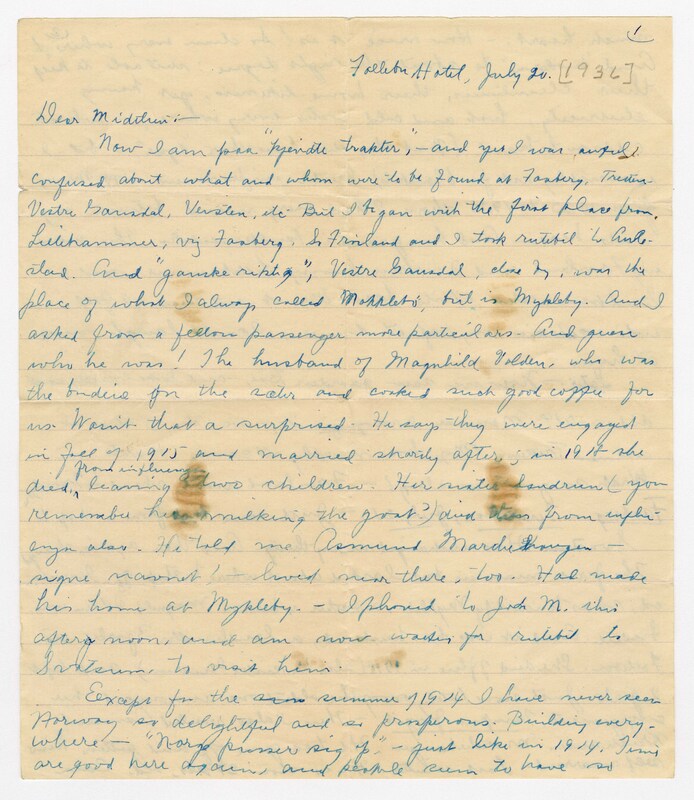 1
Follebu Hotel, July 20. [1936]
Dear Midtlien:-
Now I am paa "kjendte trakter", - and yet I was awful
confused about what and whom were to be found at Faaberg, Tretten
Vestre Gausdal, Venstten, etc But I began with the first place from
Lillehammer, viz Faaberg. So Froiland and I took rutebil to Aule-
stad. And "ganske riktig", Vestre Gausdal, close by, was the
place of what I always called Mokkleby, but is Mykleby. And I
asked from a fellow passenger more particulars. And guess
who he was! The husband of Magnhild Volden, who was
the budeie for the sæter and cooked such good coffee for
us Wasn't that a surprised. He says they were engaged
in fall of 1915 and married shortly after; in 1918 she
died, from influenza leaving two children. Her sister (you
remember her milking the goat?) died then from influ-
enza also. He told me Asmund
signe navnet! - lived near there, too. Had made
his home at Mykleby. - I phoned to Joch M. this
after noon, and am now waiting for rutebil to
Svatsum to visit him.
Except for the sum summer of 1914 I have never seen
Norway so delightful and so prosperous. Building every-
where - "Norge pusser sig op" - just like in 1914. Times
are good here again, and people seem to have so